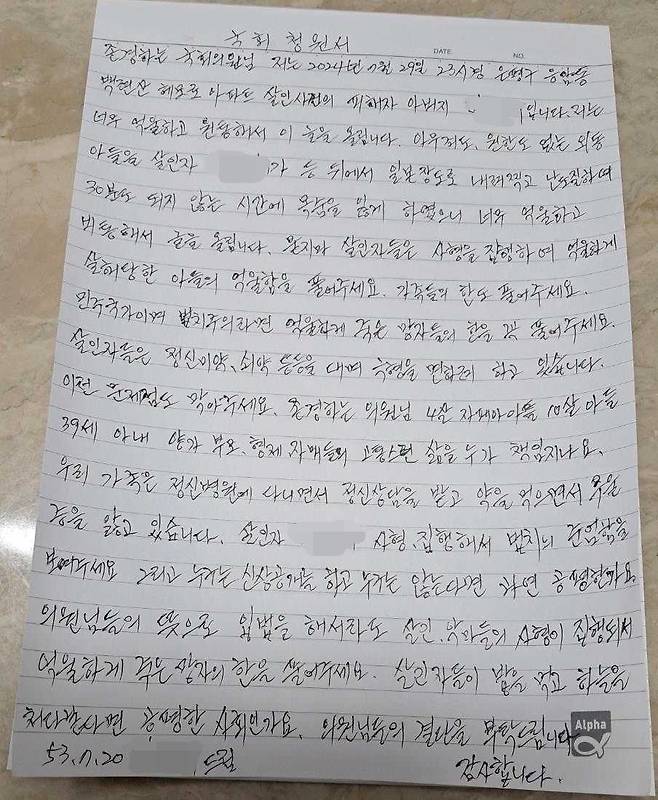 국회 청원서
DATE NO.
존경하는 국회의원님 저는 2024년 7월 29일 23시경 은평구 응암동
백련산 헤모로 아파트 살인사건의 피해자 아버지 입니다. 저는
너무 억울하고 원통해서 이 글을 올립니다. 아무죄도, 원한도 없는 외동
아들을 살인자 가 등 뒤에서 일본장도로 내려찍고 난도질하여
30분도 되지 않는 시간에 목숨을 잃게 하였으니 너무 억울하고
비통해서 글을 올립니다. 살인자들은 사형을 집행하여 억울하게
살해당한 아들의 억울함을 풀어주세요. 가족들의 한도 풀어주세요.
민주국가이며 법치주의라면 억울하게 죽은 망자들의 한을 꼭 풀어주세요.
살인자들은 정신미약, 심약 등등을 대며 극형을 면할려 하고 있습니다.
이런 문제점도 막아주세요. 존경하는 의원님 4살 자폐아아들 10살 아들
39세 아내 양가 부모, 형제 자매들의 고통스런 삶을 누가 책임지나요.
우리 가족은 정신병원에 다니면서 정신상담을 받고 약을 먹으면서 우울
증을 앓고 있습니다. 살인자 , 사형, 집행해서 법치의 준엄함을
보여주세요 그리고 누구는 신상공개를 하고 누구는 않는다면 과연 공평한가요.
의원님들의 뜻으로 입법을 해서라도 살인, 악마들의 사형이 집행되서
억울하게 죽은 망자의 한을 풀어주세요. 살인자들이 밥을 먹고 하늘을
쳐다본다면 공평한 사회인가요. 의원님들의 결단을 부탁드립니다
Alpha
53.7.20 드림 감사합니다.